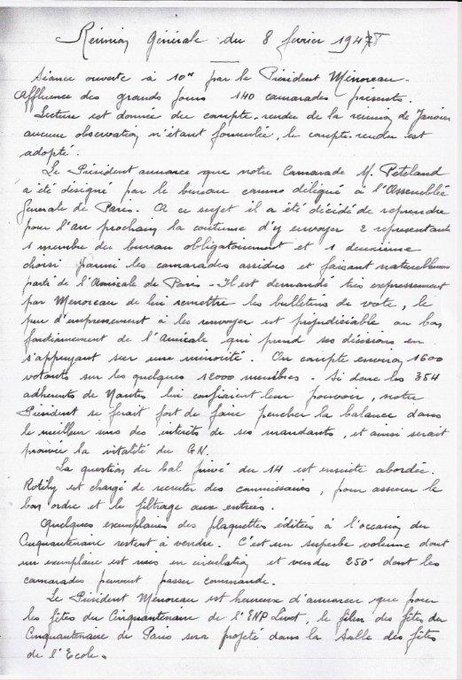 Réunion Générale du 8 février 1948
Séance ouverte à 10h par le Président Menoreau.
Affluence des grands jours 140 camarades présents.
Lecture est donnée du compte-rendu de la réunion de Janvier
aucune observation n'étant formulée, le compte-rendu est
adopté.
Le Président annonce que notre Camarade M. Peteland
a été désigné par le bureau comme délégué à l'Assemblée
Générale de Paris. A ce sujet il a été décidé de reprendre
pour l'an prochain la coutume d'y envoyer 2 représentants
1 membre du bureau obligatoirement et 1 deuxième
choisi parmi les camarades assidus et faisant naturellement
partie de l'Amicale de Paris - Il est demandé très expressément
par Menoreau de lui remettre les bulletins de vote, le
peu d'empressement à les renvoyer est préjudiciable au bon
fonctionnement de l'Amicale qui prend ses décisions en
s'appuyant sur une minorité. On compte environ 1600
votants sur les quelques 12000 membres. Si donc les 354
adhérents de Nantes lui confiaient leur pouvoir, notre
Président se ferait fort de faire pencher la balance dans
le meilleur sens des intérêts de ses mandants, et ainsi serait
prouvée la vitalité du GN.
La question du bal privé du 14 est ensuite abordée.
Rotily est chargé de recruter des commissaires, pour assurer le
bon ordre et le filtrage aux entrées.
Quelques exemplaires des plaquettes éditées à l'occasion du
Cinquantenaire restent à vendre. C'est un superbe volume dont
un exemplaire est mis en circulation et vendu 250f dont les
camarades peuvent passer commande.
Le Président Menoreau est heureux d'annoncer que pour
les fêtes du Cinquantenaire de l'ENP Livet, le film des fêtes du
Cinquantenaire de Paris sera projeté dans la Salle des fêtes
de l'Ecole.